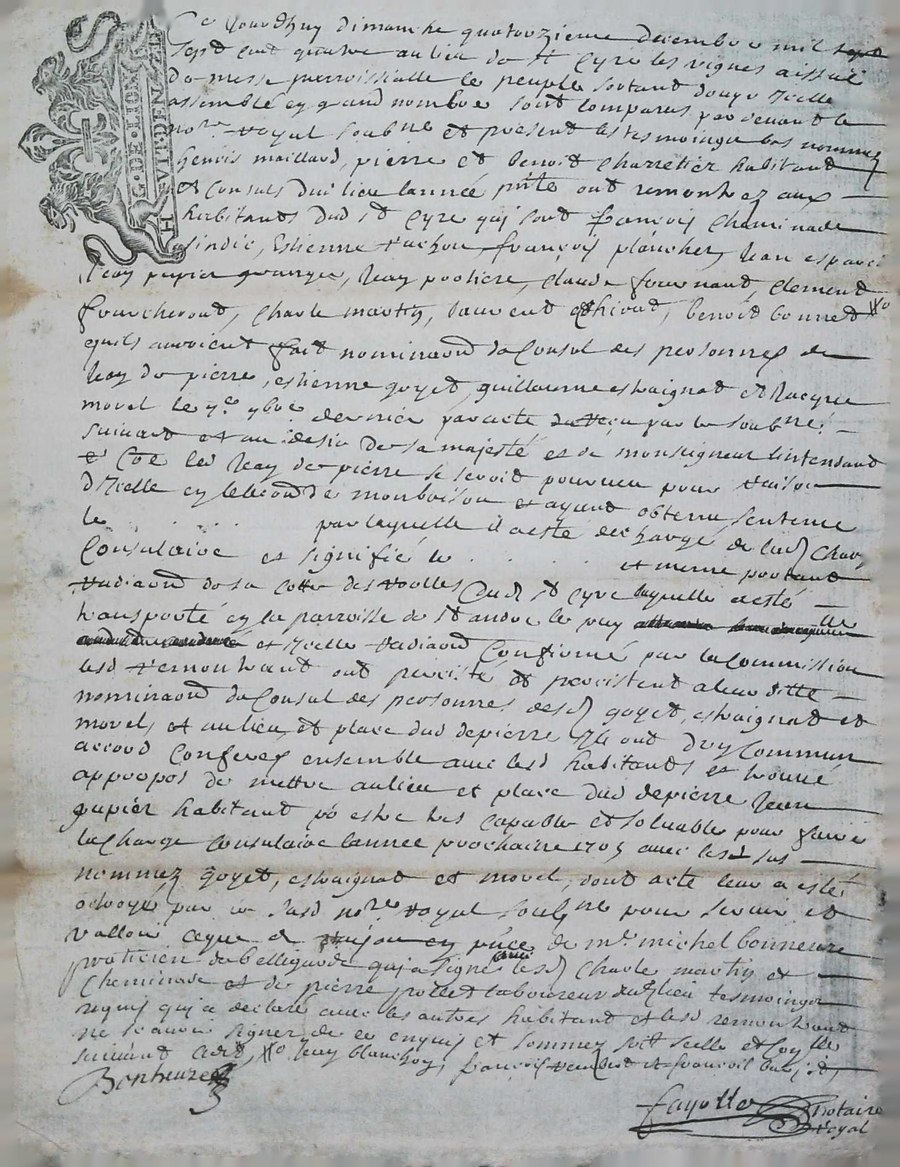 G. DE LION
HVIT. DEN
Ce Jourdhuy dimanche quatorzieme decembre mil
sept cent quatre au lieu de st Cyre les vignes a issue
de messe parroissialle le peuple sortant d'ouyr Icelle
assemblé en grand nombre sont comparus par devant le
nore Royal soubne et present les tesmoingts bas nommez
benoit maillard, pierre et benoit Charretier habitant
et Consuls dud lieu lannée pnte ont remontrez aux
habitants dud st Cyre qui sont françois Cheminade
sindic, Estienne françois plancher, Jean
Jean papier grangier, Jean, Claude fournand, Clement
fourcheront, Charle martin, laurent, benoit bonnet
quils auroient fait nominaon de Consul des personnes de
Jean de pierre, estienne goyet, guillaume estraignat et Jacque
morel le 9bre derniée par acte receu par le soubne
suivant et au desir de sa majesté et de monseigneur lintendant
et Coe led Jean de pierre se seroit pourveu pour raison
d'Icelle en lelection de monbrison et ayant obtenu sentence
le . . . . . . par laquelle il a esté dechargé de lad Charge
Consulaire et signifié le . . . . . et meme portant
radiaon de sa cotte des roolles dud st Cyre laquelle a esté
transporté en la parroisse de st andre le puy
et Icelle radiaon Confirmé par la Commission
lesd remontrant ont percisté et percistent a leur ditte
nominaon de Consul des personnes desd goyet, estraignat et
morel, et au lieu et place dud depierre Ils ont d'un Commun
accord Conferez ensemble avec lesd habitants et trouvé
appropos de mettre au lieu et place dud depierre Jean
papier habitant po estre tres capable et soluable pour faire
la Charge Consulaire lannée prochaine 1705 avec lesd sus
nommez goyet, estraignat et morel, dont acte leur a esté
octroyé par led nore royal soubne pour servir et
valloir ce que de raison en pnce de mre michel bonneure
praticien de bellegarde qui a signé avec lesd Charle martin et
Cheminade et de pierre pollet laboureur dud lieu tesmoingts
requis qui a declaré avec les autres habitant et lesd remontrant
ne scavoir signer de ce enquis et sommez soit scellé et Conllé
suivant Jean blanchon, francois et francois
Bonheure
fayolle notaire
royal